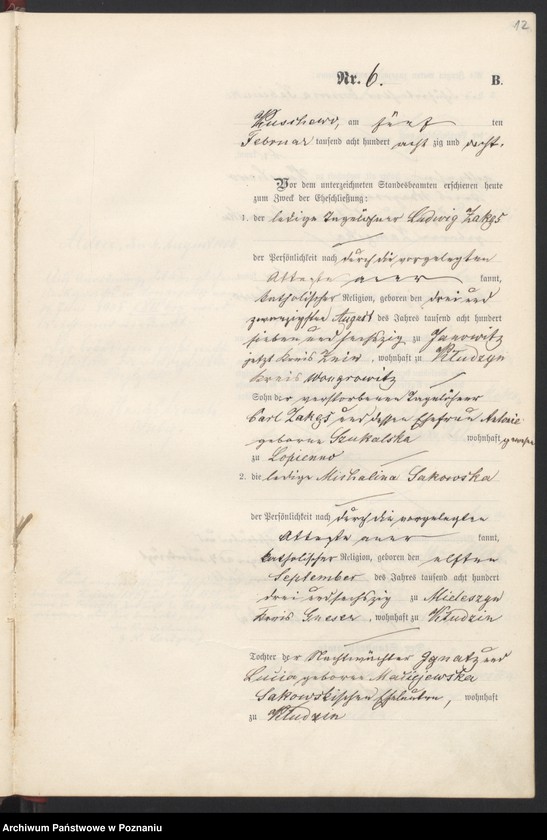 12
Nr. 6. B.
Kuschowo, am fünf ten
Februar tausend acht hundert acht zig und acht.
Vor dem unterzeichneten Standesbeamten erschienen heute
zum Zweck der Eheschließung:
1. der ledige Tagelöhner Ludwig Zakęs
der Persönlichkeit nach durch die vorgelegten
Atteste aner kannt,
katholischer Religion, geboren den drei und
zwanzigsten August des Jahres tausend acht hundert
sieben und sechszig zu Janowitz
jetzt Kreis Znin, wohnhaft zu Kłudzyn
Kreis Wongrowitz
Sohn der verstorbenen Tagelöhner
Carl Zakęs und dessen Ehefrau Antonie
geborne Szukalska wohnhaft gewesen
zu Lopienno
2. die ledige Michalina Sakowska
der Persönlichkeit nach durch die vorgelegten
Atteste aner kannt,
katholischer Religion, geboren den elften
September des Jahres tausend acht hundert
drei und sechszig zu Mieleszyn
Kreis Gnesen, wohnhaft zu Kłudzin
Tochter der Nachtwächter Ignatz und
Lucia geborne Maciejewska
Sakowskischen Eheleuten, wohnhaft
zu Kłudzin
Archiwum Państwowe w Poznaniu